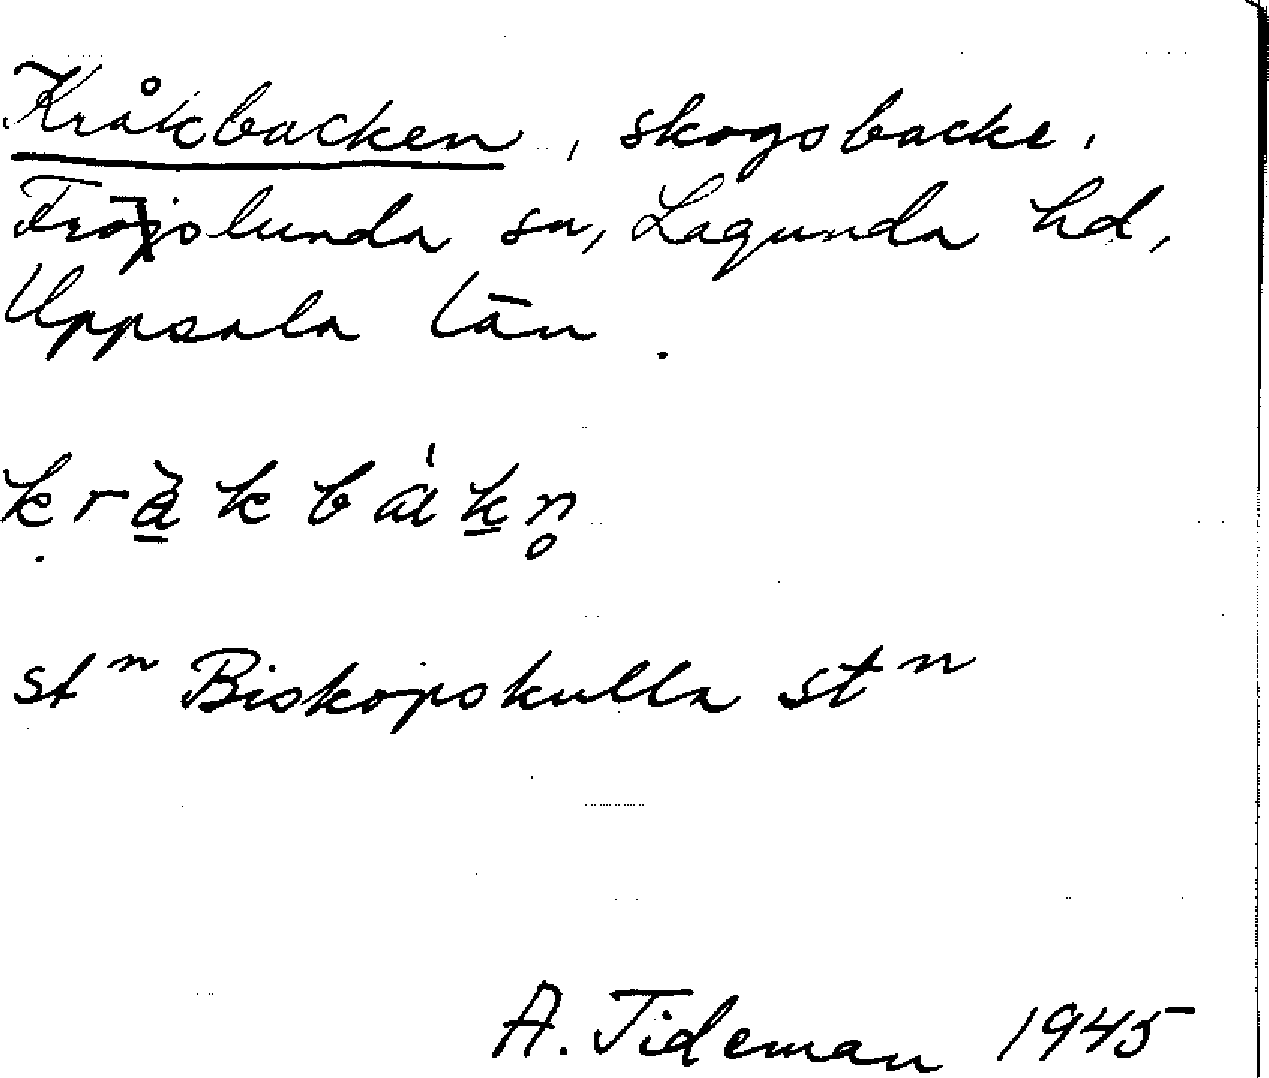 Kråkbacken, skogsbacke,
Fröslunda sn, Lagunda hd,
Uppsala län.
kràkbákn̥
stn Biskopskulla stn
A. Tideman 1945